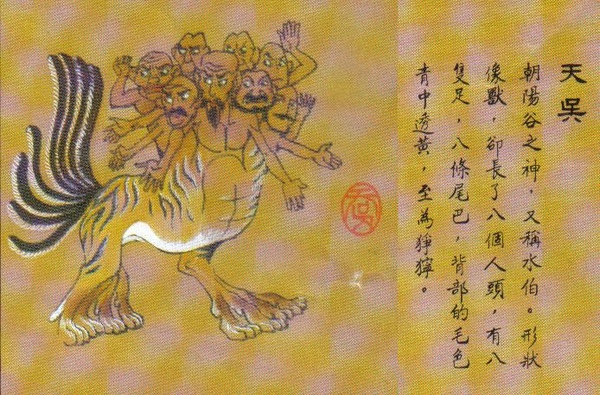 天吳
朝陽谷之神，又稱水伯。形狀
像獸，卻長了八個人頭，有八
隻足，八條尾巴，背部的毛色
青中透黃，至為猙獰。